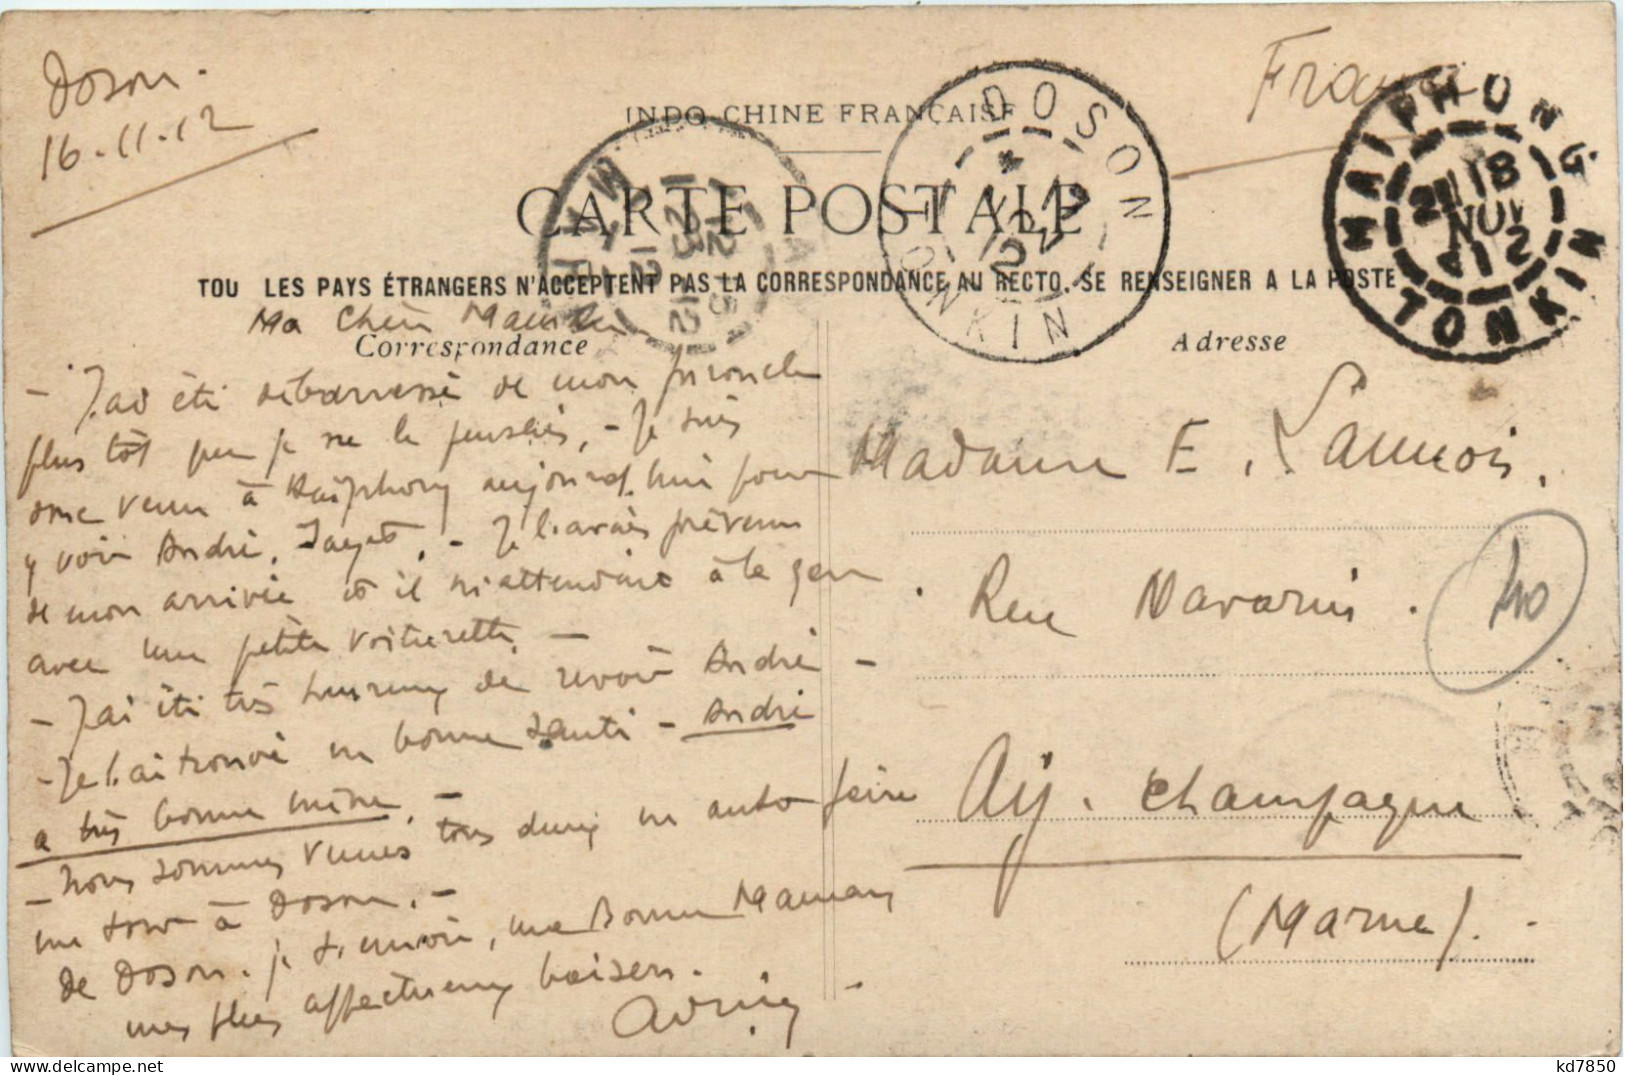 Doson.
16.11.12
France
INDO-CHINE FRANÇAISE
CARTE POSTALE
TOU LES PAYS ÉTRANGERS N'ACCEPTENT PAS LA CORRESPONDANCE AU RECTO. SE RENSEIGNER A LA POSTE
DOSON
TONKIN
HAIPHONG
18
NOV
12
TONKIN
Ma Chère Maman
Correspondance
Adresse
- J'ai été débarrassé de mon furoncle
plus tôt que je ne le pensais, - Je suis
donc venu à Haïphong aujourd'hui pour
y voir André. - Je l'avais prévenu
de mon arrivée et il m'attendait à la gare
avec une petite voiturette. -
- J'ai été très heureux de revoir André -
- Je l'ai trouvé en bonne santé - André
a très bonne mine. -
- Nous sommes venus tous deux en auto faire
un tour à Doson. -
de Doson. je t'envoie, ma Bonne Maman
mes plus affectueux baisers.
Madame E. Launois.
Rue Navarin.
40
Aÿ. Champagne
(Marne).
kd7850